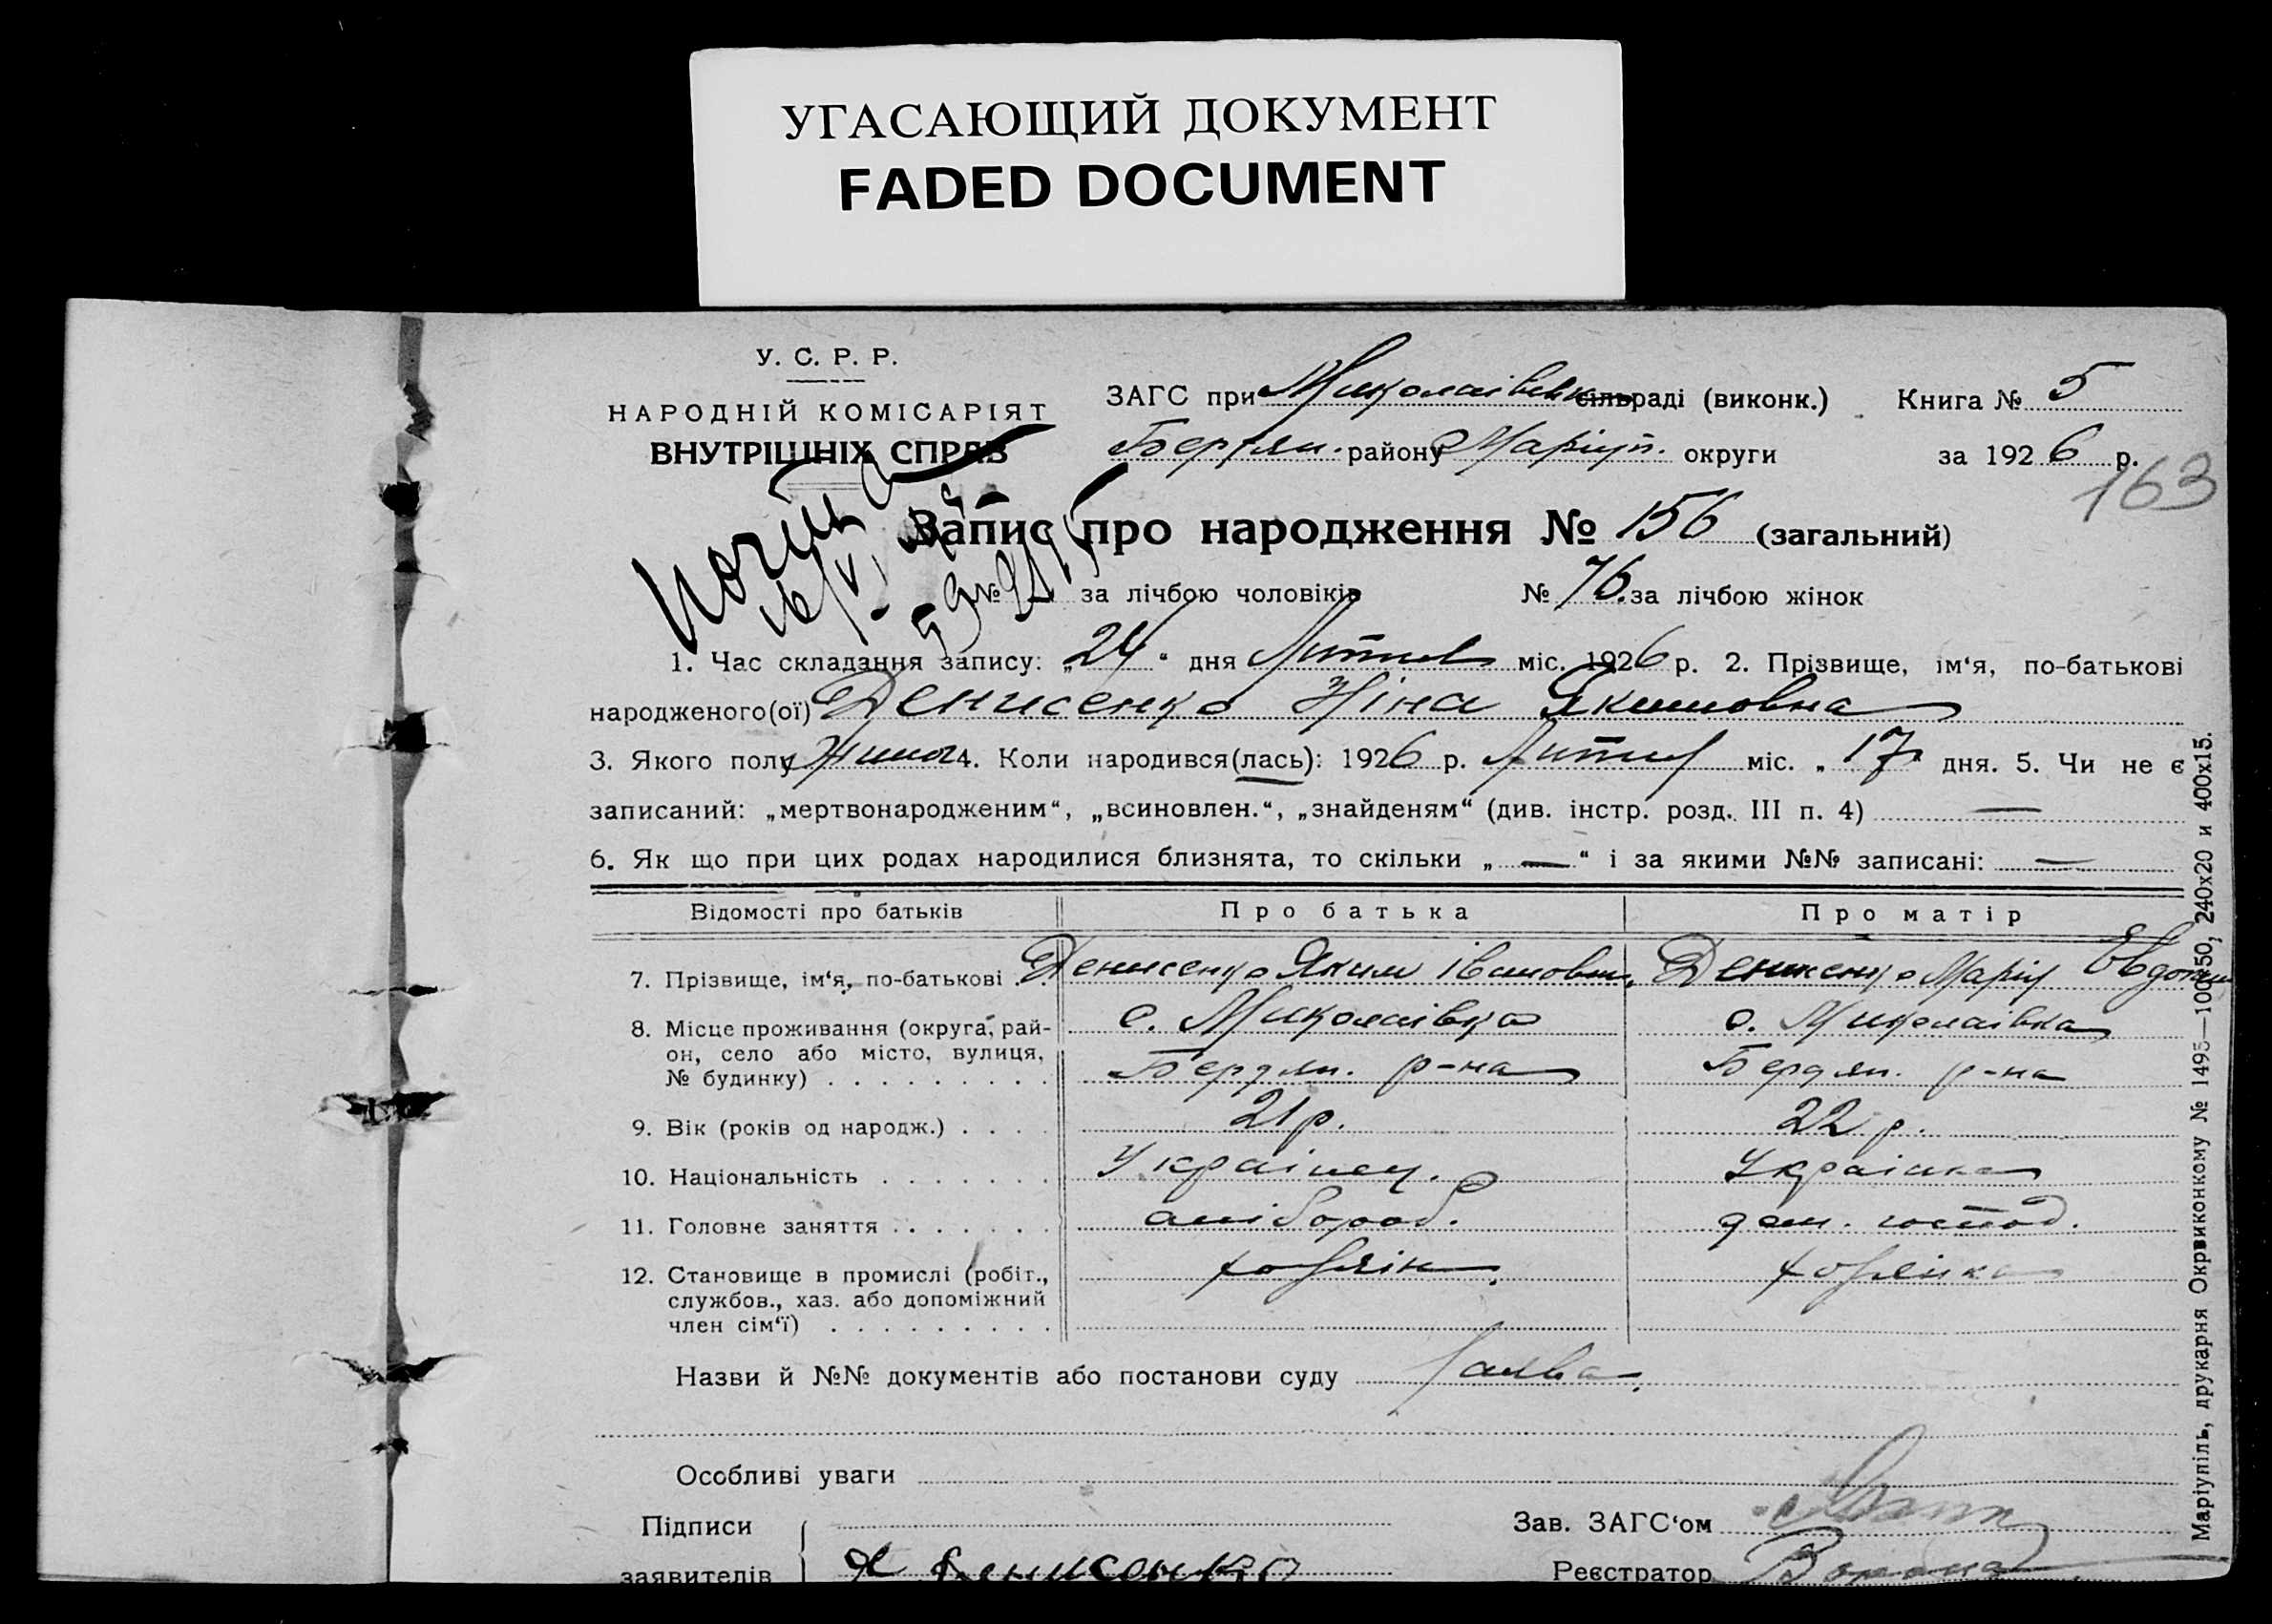 УГАСАЮЩИЙ ДОКУМЕНТ
FADED DOCUMENT
У. С. Р. Р.
НАРОДНІЙ КОМІСАРІЯТ
ВНУТРІШНІХ СПРАВ
ЗАГС при Миколаівськ. сільраді (виконк.) Книга № 5
Бердян. району Маріуп. округи за 1926 р.
163
Запис про народження № 156 (загальний)
№ за лічбою чоловіків № 76. за лічбою жінок
1. Час складання запису: „24“ дня Лютня міс. 1926 р. 2. Прізвище, ім‘я, по-батькові
народженого(ої) Денисенко Ніна Якимовна
3. Якого полу Жиноч 4. Коли народився(лась): 1926 р. Лютня міс. „17“ дня. 5. Чи не є
записаний: „мертвонародженим“, „всиновлен.“, „знайденям“ (див. інстр. розд. III п. 4) —
6. Як що при цих родах народилися близнята, то скільки „—“ і за якими №№ записані: —
Відомості про батьків Про батька Про матір
7. Прізвище, ім‘я, по-батькові . . Денисенко Яким Івановш. Денисенко Марія Євдоким
8. Місце проживання (округа, район, село або місто, вулиця, № будинку) . . . . . . . . . с. Миколаівка Бердян. р-на с. Миколаівка Бердян. р-на
9. Вік (років од народж.) . . . . 21 р. 22 р.
10. Національність . . . . . . . Украінец. Украінка
11. Головне заняття . . . . . . . хлібороб. дом. господ.
12. Становище в промислі (робіт., службов., хаз. або допоміжний член сім‘ї) . . . . . . . . .
Назви й №№ документів або постанови суду
Особливі уваги
Підписи Зав. ЗАГС‘ом
заявителів Я Денисенко Реєстратор
Маріупіль, друкарня Окрвиконкому № 1495—100х50, 240х20 и 400х15.